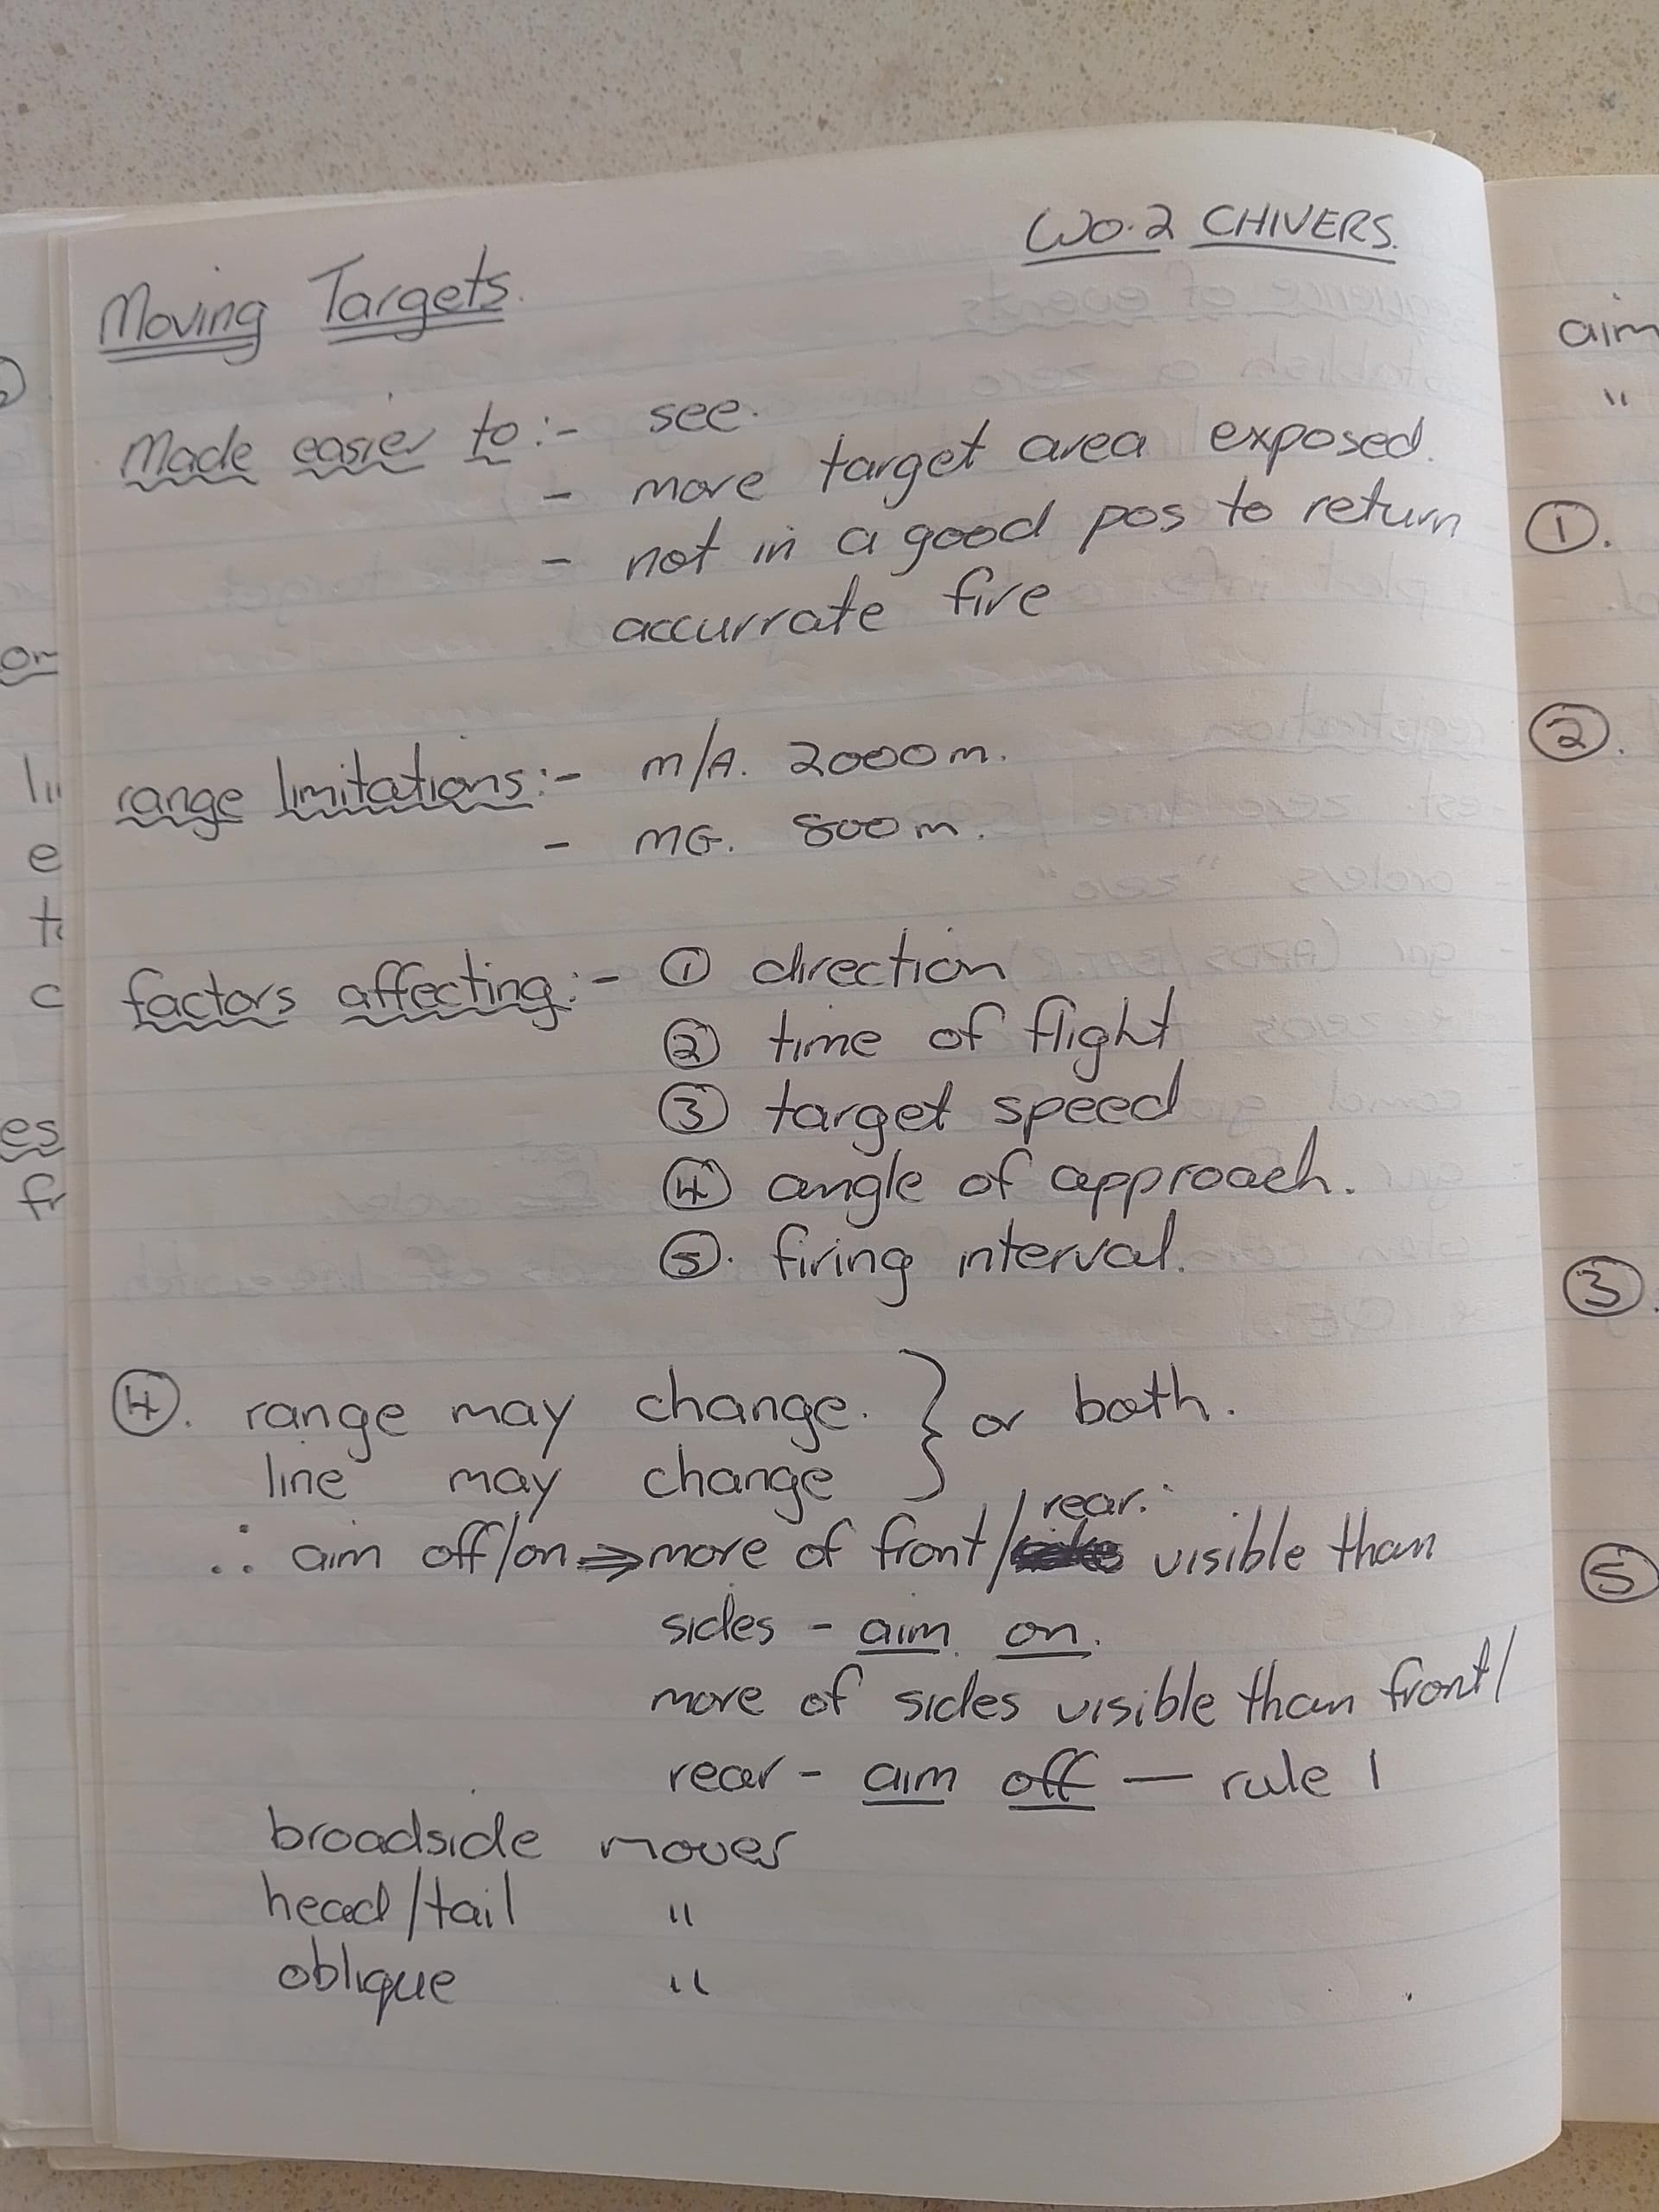 WO.2 CHIVERS.
Moving Targets.
Made easier to:- see.
- more target area exposed.
- not in a good pos to return
accurrate fire
range limitations:- m/A. 2000m.
- MG. 800m.
factors affecting:- ① direction
② time of flight
③ target speed
④ angle of approach.
⑤. firing interval.
④. range may change. } or both.
line may change
∴ aim off/on ⇒ more of front/rear. visible than
sides - aim on.
more of sides visible than front/
rear - aim off — rule 1
broadside mover
head/tail "
oblique "
aim
"
①.
②.
③.
⑤